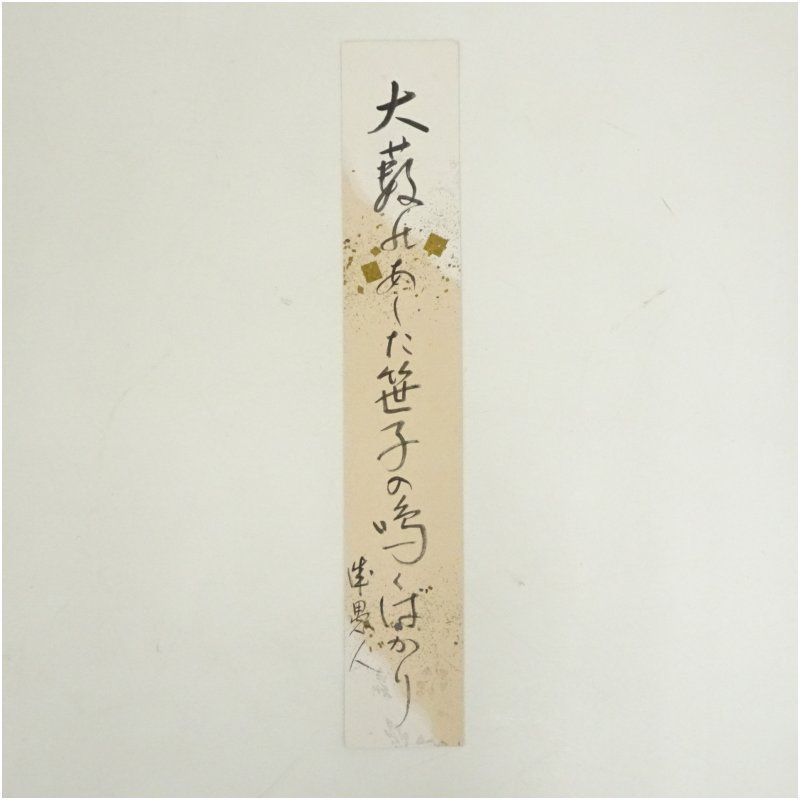 大藪のあした笹子の鳴くばかり
愚人